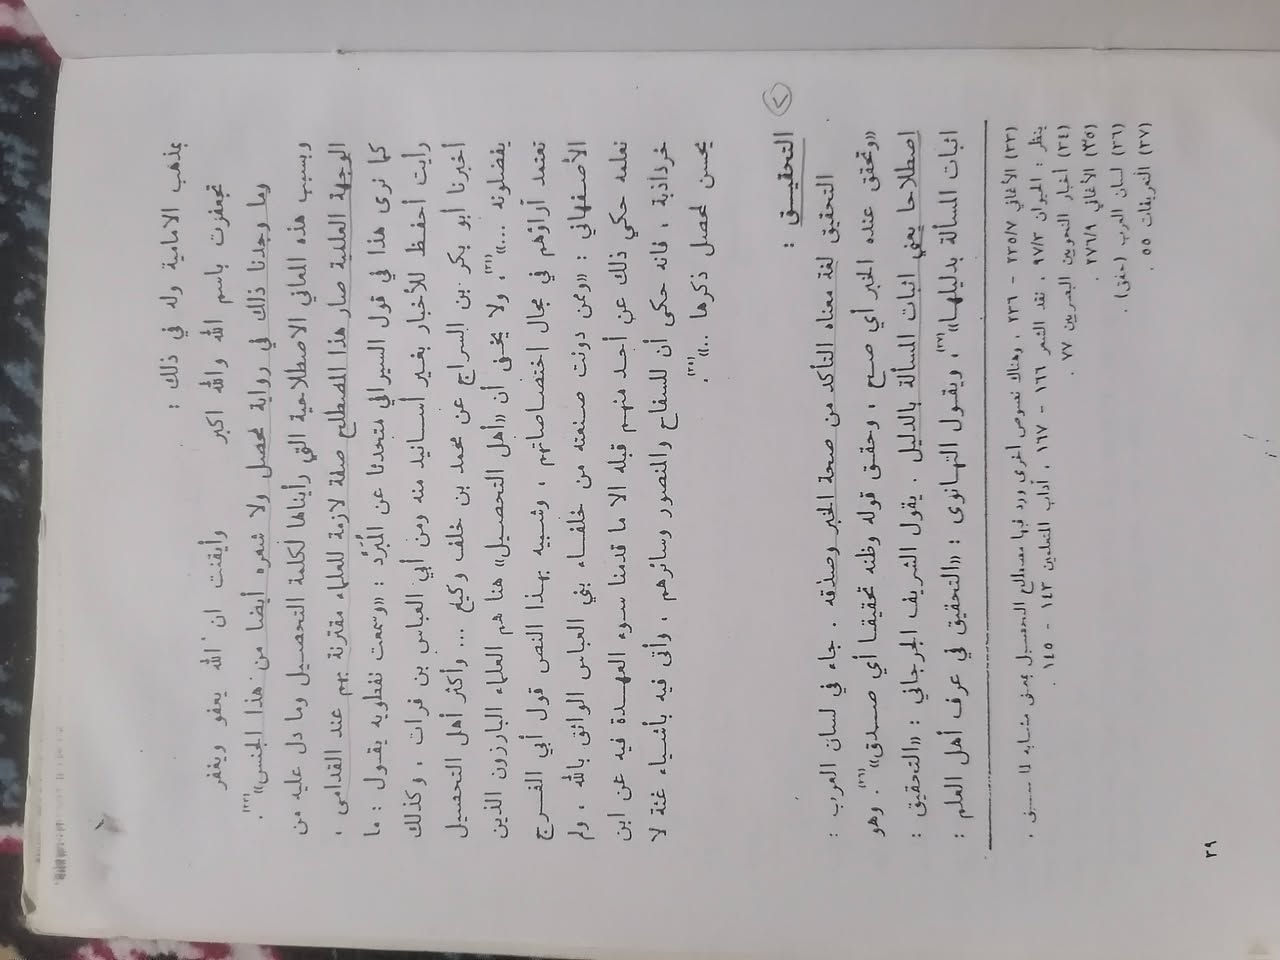 بمذهب الامامية وله في ذلك :
تجعفرت باسم الله والله اكبر وأيقنت ان الله يعفو ويغفر
وما وجدنا ذلك في رواية محصل ولا شعره أيضا من هذا الجنس»(٢٣) .
وبسبب هذه المعاني الاصطلاحية التي رأيناها لكلمة التحصيل وما دل عليه من
الوجهة العلمية صار هذا المصطلح صفة لازمة للعلماء مقترنة بهم عند القدامى ،
كما نرى هذا في قول السيرافي متحدثا عن المُبَرَّد : «وسمعت نفطويه يقول : ما
رأيت أحفظ للأخبار بغير أسانيد منه ومن أبي العباس بن فرات ، وكذلك
أخبرنا أبو بكر بن السراج عن محمد بن خلف وكيع ... وأكثر أهل التحصيل
يفضلونه ...»(٢٤) ، ولا يخفى أن «أهل التحصيل» هنا هم العلماء البارزون الذين
تعتمد آراؤهم في مجال اختصاصاتهم ، وشبيه بهذا النص قول أبي الفرج
الأصفهاني : «وممن دونت صنعته من خلفاء بني العباس الواثق بالله ، ولم
نعلمه حكي ذلك عن أحد منهم قبله الا ما قدمنا سوء العهدة فيه عن ابن
خرداذبة ، فانه حكى أن للسفاح والمنصور وسائرهم ، وأتى فيه بأشياء غثة لا
يحسن لمحصل ذكرها ..»(٢٥) .
التحقيق :
التحقيق لغة معناه التأكد من صحة الخبر وصدقه . جاء في لسان العرب :
«وتحقق عنده الخبر أي صح ، وحقق قوله وظنه تحقيقا أي صدق»(٢٦) . وهو
إصطلاحا يعني اثبات المسألة بالدليل . يقول الشريف الجرجاني : «التحقيق :
اثبات المسألة بدليلها»(٢٧) ، ويقول التهانوى : «التحقيق في عرف أهل العلم :
(٢٣) الأغاني ٢٣٥/٧ - ٢٣٦ ، وهناك نصوص أخرى ورد فيها مصطلح التحصيل بمعنى مشابه لما سبق ،
ينظر : الحيوان ٩٧/٣ ، نقد الشعر ١٦٦ - ١٦٧ ، آداب المتعلمين ١٤٣ - ١٤٥ .
(٢٤) أخبار النحويين البصريين ٧٧ .
(٢٥) الأغاني ٢٧٦/٩ .
(٢٦) لسان العرب (حقق) .
(٢٧) التعريفات ٥٥ .
٢٩